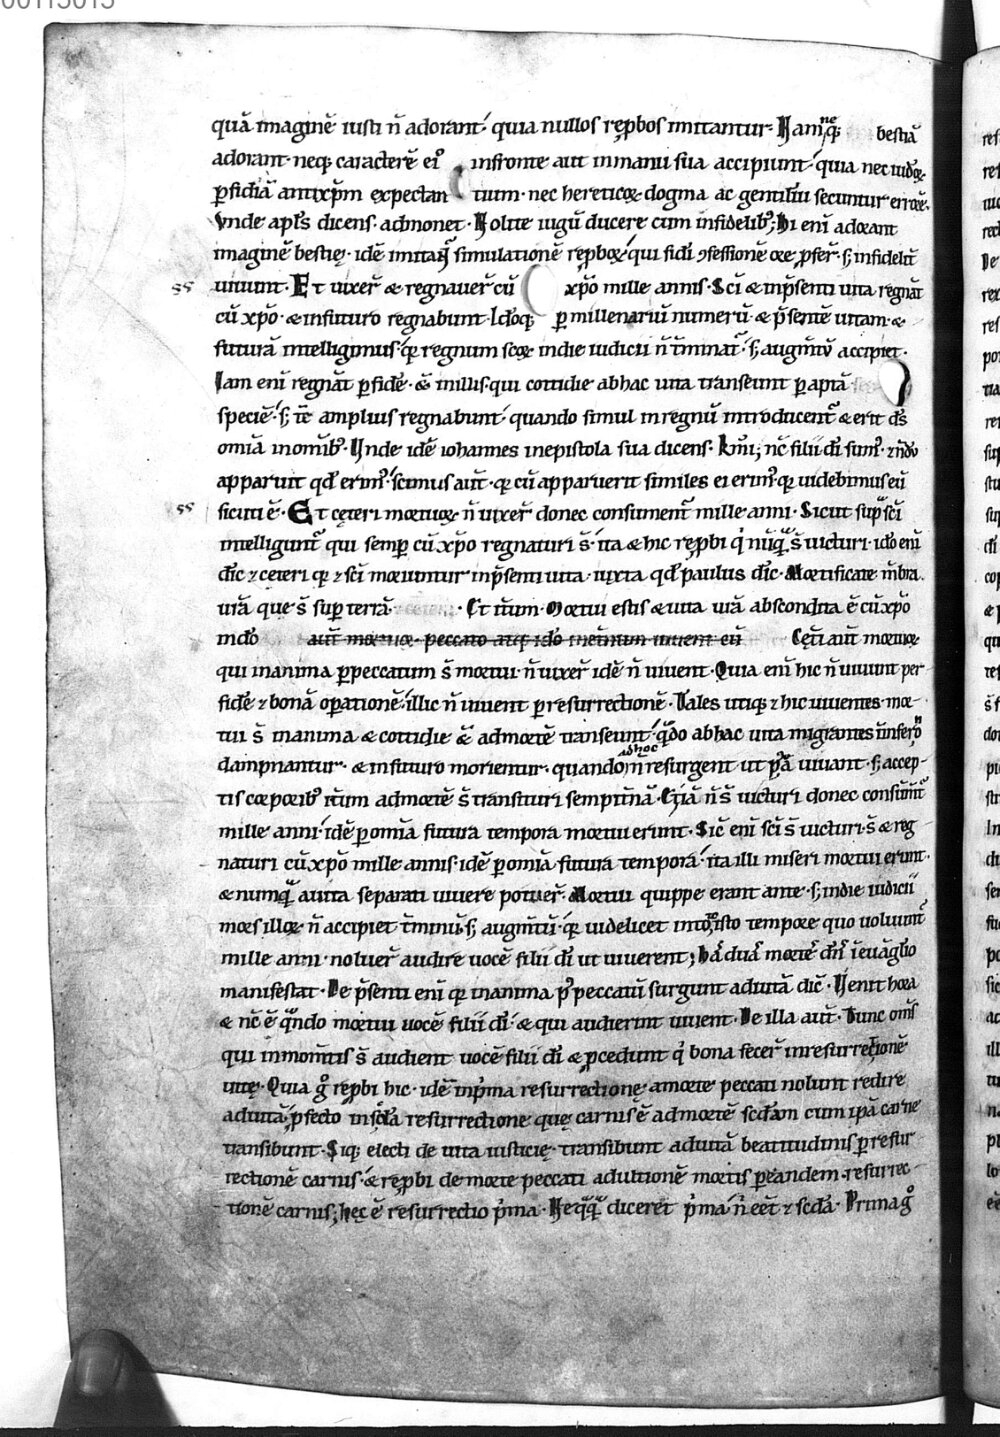 00113015
quā imaginē iusti n̄ adorant · quia nullos rep̱bos imitantur · Nam neq; bestiā
adorant · neq; caracterē eiꝰ infronte aut inmanu sua accipiunt · quia nec iudeoꝝ
ꝑfidiā antixp̄m expectantium · nec hereticoꝝ dogma ac gentiliū secuntur errorē ·
Vnde apl̄s dicens · admonet · Nolite iugū ducere cum infidelibꝰ ; hi eni adorant
imaginē bestię · idē simulationē reproboꝝ · qui fidei ꝯfessionē ore s; infidelit̄
uiuunt · Et uixer̄ & regnauer̄ cū xp̄o mille annis · Sc̄i & inp̄senti uita regnāt
cū xp̄o · & infuturo regnabunt · Idoq; ꝑ millenariū numerū · & p̄sentē uitam · &
futurā intelligimus · qr̄ regnum sc̄oꝝ indie iudicii n̄ t̄minat̄ · s; augm̄tū accipiet ·
Iam eni regnāt ꝑ fidē · & millis · qui cottidie abhac uita transeunt ꝑ aptā
speciē · s; tc̄ amplius regnabunt · quando simul inregnū introducent̄ & erit d̄s
omīa inomībꝰ · Vnde idē iohannes inepistola sua dicens · km̄i ; nc̄ filii dī sumꝰ · & nōdū
apparuit qd̄ erimꝰ · scimus aūt · qr̄ cū apparuerit similes ei erimꝰ · qr̄ uidebimus eū
sicuti ē · Et cęteri mortuoꝝ n̄ uixer̄ donec consument̄ mille anni · Sicut supͣ sc̄i
intelligunt̄ qui semꝑ cū xp̄o regnaturi s̄ · ita & hic rep̱bi qͥ nūqͣ s̄ uicturi · ido eni
dic̄ & ceteri qr̄ & sc̄i moriuntur inp̄senti uita · iuxta qd̄ paulus dic̄ · Mortificate m̄bra
urā que s̄ suꝑ terrā · Et it̄um · Mortui estis & uita urā abscondita ē cū xp̄o
indo aūt mortuoꝝ · peccato atq; Cet̄i aūt mortuoꝝ
qui inanima ꝑ peccatum s̄ mortui · n̄ uixer̄ idē n̄ uiuent · Quia eni hic n̄ uiuunt per
fidē & bonā oꝑationē · illic n̄ uiuent ꝑ resurrectionē · Tales utiq; & hic uiuentes · mor
tui s̄ inanima & cottidie ē admortē transeunt · qn̄do abhac uita migrantes in inferno
dampnantur · & infuturo morientur · quando adhoc n̄ resurgent · ut uiuant · s; accep
tis corꝑoribꝰ it̄um admortē s̄ transituri sempit̄nā · Etiā n̄ s̄ uicturi donec consūm̄t
mille anni · idē ꝑ omīa futura tempora mortui erunt · Sic̄ eni sc̄i s̄ uicturi · s̄ & reg
naturi cū xp̄o mille annis · idē ꝑ omīa futura tempora · ita illi miseri mortui erunt ·
& numqͣ auita separati uiuere potuer̄ · Mortui quippe erant ante · s; indie iudicii
mors illoꝝ · n̄ accipiet t̄minū · s; augm̄tū · qr̄ uidelicet isto tempore quo uoluunt̄
mille anni · noluer̄ audire uocē filii dī ut uiuerent ; mortē dn̄s ieuāglio
manifestat · De p̄senti eni qr̄ inanima p̱ peccatū surgunt aduitā dic̄ · Venit hora
& nc̄ ē qn̄do mortui uocē filii dī · & qui audierint uiuent · De illa aūt · Tunc om̄s
qui inmom̄tis s̄ audient uocē filii dī & p̱cedunt qͥ bona fecer̄ inresurrectionē
uitę · Quia gͦ rep̱bi hic · idē inp̄ma resurrectionę · amorte peccati nolunt redire
aduitā · p̱fecto resurrectione quę carnis ē admortē scd̄am cum ip̄a carne
transibunt · Siq; electi de uita iusticię · transibunt aduitā beatitudinis ꝑ resur
rectionē carnis · & rep̱bi demorte peccati adultionē mortis ꝑ eandem · resurrec
tionē carnis ; hęc ē resurrectio p̄ma · Neqͣqͣ diceret p̄ma · n̄ eēt & scd̄a · Prima gͦ